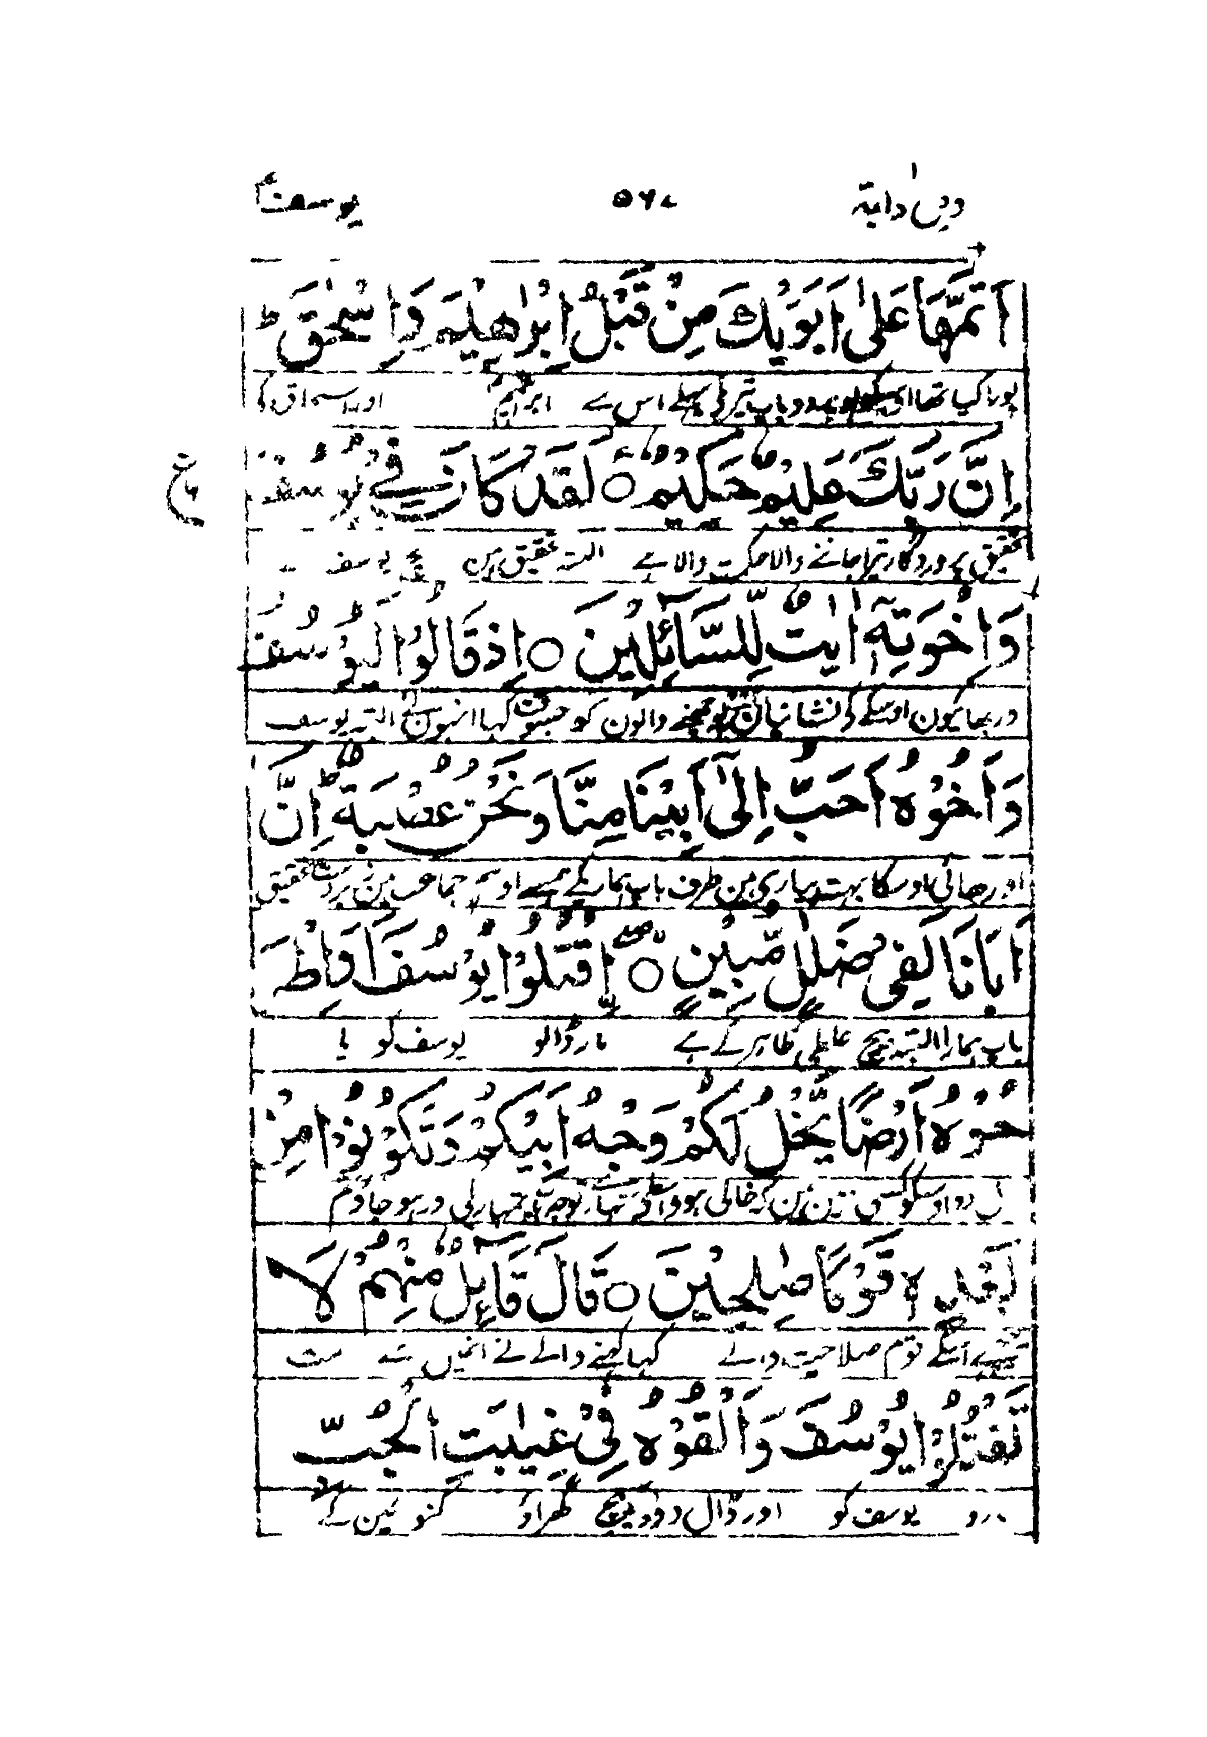 ومن دابة ۵۶۷ يوسف
اَتَمَّهَا عَلٰى اَبَوَيْكَ مِنْ قَبْلُ اِبْرٰهِيْمَ وَاِسْحٰقَ ط
پورا کیا تھا دو باپ تیرے کی پہلے اس سے ابراہیم اور اسحاق کی
اِنَّ رَبَّكَ عَلِيْمٌ حَكِيْمٌ ○ لَقَدْ كَانَ فِيْ يُوْسُفَ
ع
تحقیق پروردگار تیرا جاننے والا حکمت والا ہے البتہ تحقیق ہین بیچ یوسف
وَاِخْوَتِهٖٓ اٰيٰتٌ لِّلسَّآئِلِيْنَ ○ اِذْ قَالُوْا لَيُوْسُفُ
اور بھائیون اوسکے کی نشانیان پوچھنے والون کو جسوقت کہا انہون نے البتہ یوسف
وَاَخُوْهُ اَحَبُّ اِلٰٓى اَبِيْنَا مِنَّا وَنَحْنُ عُصْبَةٌ ط اِنَّ
اور بھائی اوسکا بہت پیارے ہین طرف باپ ہمارے کے ہمسے اور ہم جماعت ہین تحقیق
اَبَانَا لَفِيْ ضَلٰلٍ مُّبِيْنٍ ○ اقْتُلُوْا يُوْسُفَ اَوِاطْرَ
باپ ہمارا البتہ بیچ غلطی ظاہر کے ہے مار ڈالو یوسف کو یا
حُوْهُ اَرْضًا يَّخْلُ لَكُمْ وَجْهُ اَبِيْكُمْ وَتَكُوْنُوْا مِنْ
ڈال دو اوسکو کسی زمین مین کہ خالی ہو واسطے تمہارے توجہ باپ تمہارے کی اور ہو جاؤ تم
بَعْدِهٖ قَوْمًا صٰلِحِيْنَ ○ قَالَ قَآئِلٌ مِّنْهُمْ لَا
پیچھے اسکے قوم صلاحیت والے کہا کہنے والے نے انمین سے مت
تَقْتُلُوْا يُوْسُفَ وَاَلْقُوْهُ فِيْ غَيٰبَتِ الْجُبِّ
یوسف کو اور ڈال دو بیچ گہراؤ کنوئین کے